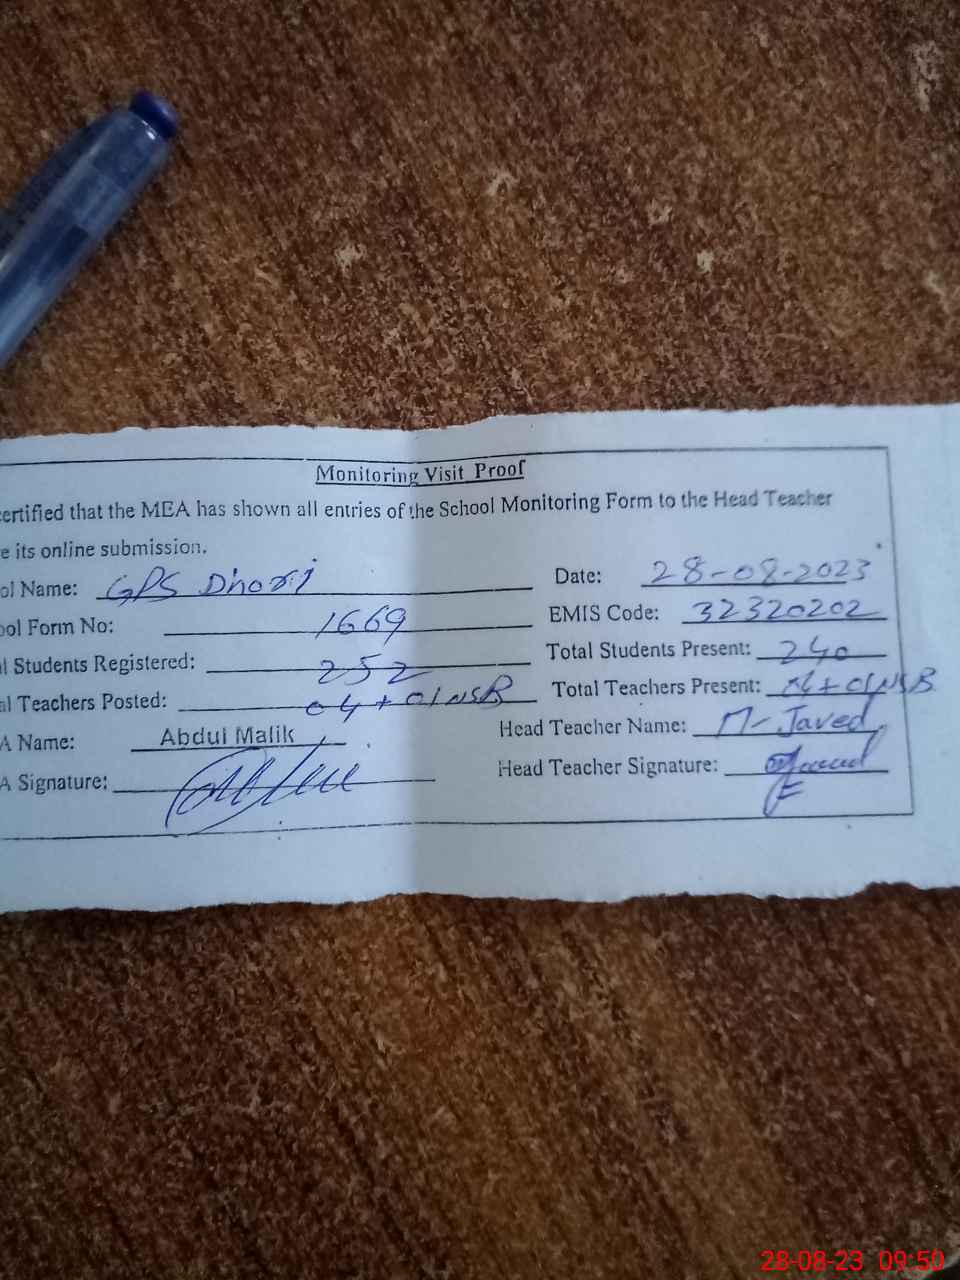 Monitoring Visit Proof
ertified that the MEA has shown all entries of the School Monitoring Form to the Head Teacher
e its online submission.
ol Name: GPS Dhori Date: 28-08-2023
ool Form No: 1669 EMIS Code: 32320202
l Students Registered: 252 Total Students Present: 240
al Teachers Posted: 04+01NSB Total Teachers Present: 04+01NSB
A Name: Abdul Malik Head Teacher Name: M-Javed
A Signature: Head Teacher Signature:
28-08-23 09:50